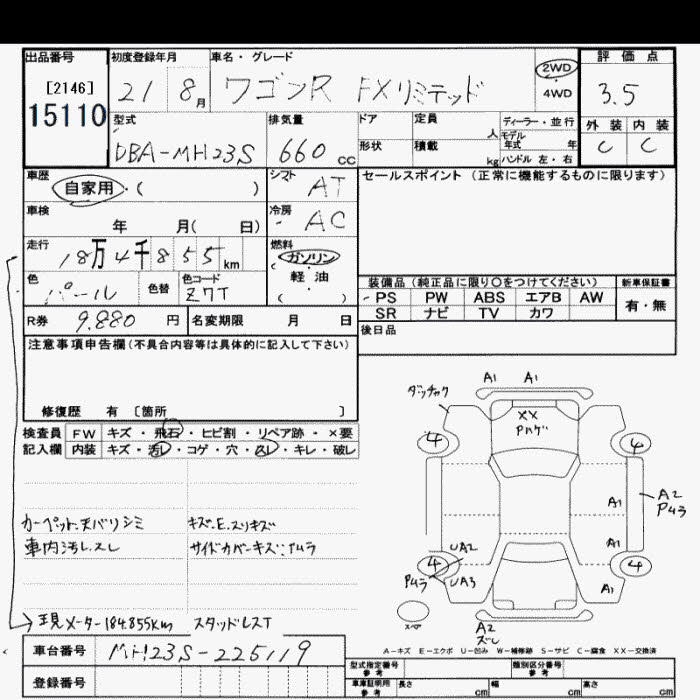 出品番号 初度登録年月 車名・グレード 評価点
[2146] 21 8月 ワゴンR FXリミテッド 2WD 3.5
15110 4WD
型式 排気量 ドア 定員 人 ディーラー・並行 外装 内装
DBA-MH23S 660cc 形状 積載 kg モデル年式 年 C C
ハンドル 左・右
車歴 自家用・( ) シフト AT セールスポイント(正常に機能するものに限ります)
車検 年 月( 日) 冷房 AC
走行 18万4千855km 燃料 ガソリン
軽・油
( )
色 パール 色替 色コード Z7T
装備品(純正品に限り〇をつけてください) 新車保証書
PS PW ABS エアB AW 有・無
SR ナビ TV カワ
R券 9.880円 名変期限 月 日 後日品
注意事項申告欄(不具合内容等は具体的に記入して下さい)
修復歴 有 [箇所 ]
検査員 FW キズ・飛石・ヒビ割・リペア跡・×要
記入欄 内装 キズ・汚レ・コゲ・穴・スレ・キレ・破レ
A1 A1
ダッチャク
XX
Pハゲ
4 4
A1 A2
Pムラ
A1
UA2
4 4
Pムラ UA3 A1
スペア
A2
ズレ
カーペット.天バリシミ キズ.E.スリキズ
車内汚レ.スレ サイドカバーキズ.Pムラ
現メーター184.855Km スタッドレスT
A-キズ E-エクボ U-凹み W-補修跡 S-サビ C-腐食 XX-交換済
車台番号 MH23S-225119
型式指定番号 参考 類別区分番号 参考
登録番号 車庫証明用 参考 長さ cm 幅 cm 高さ cm